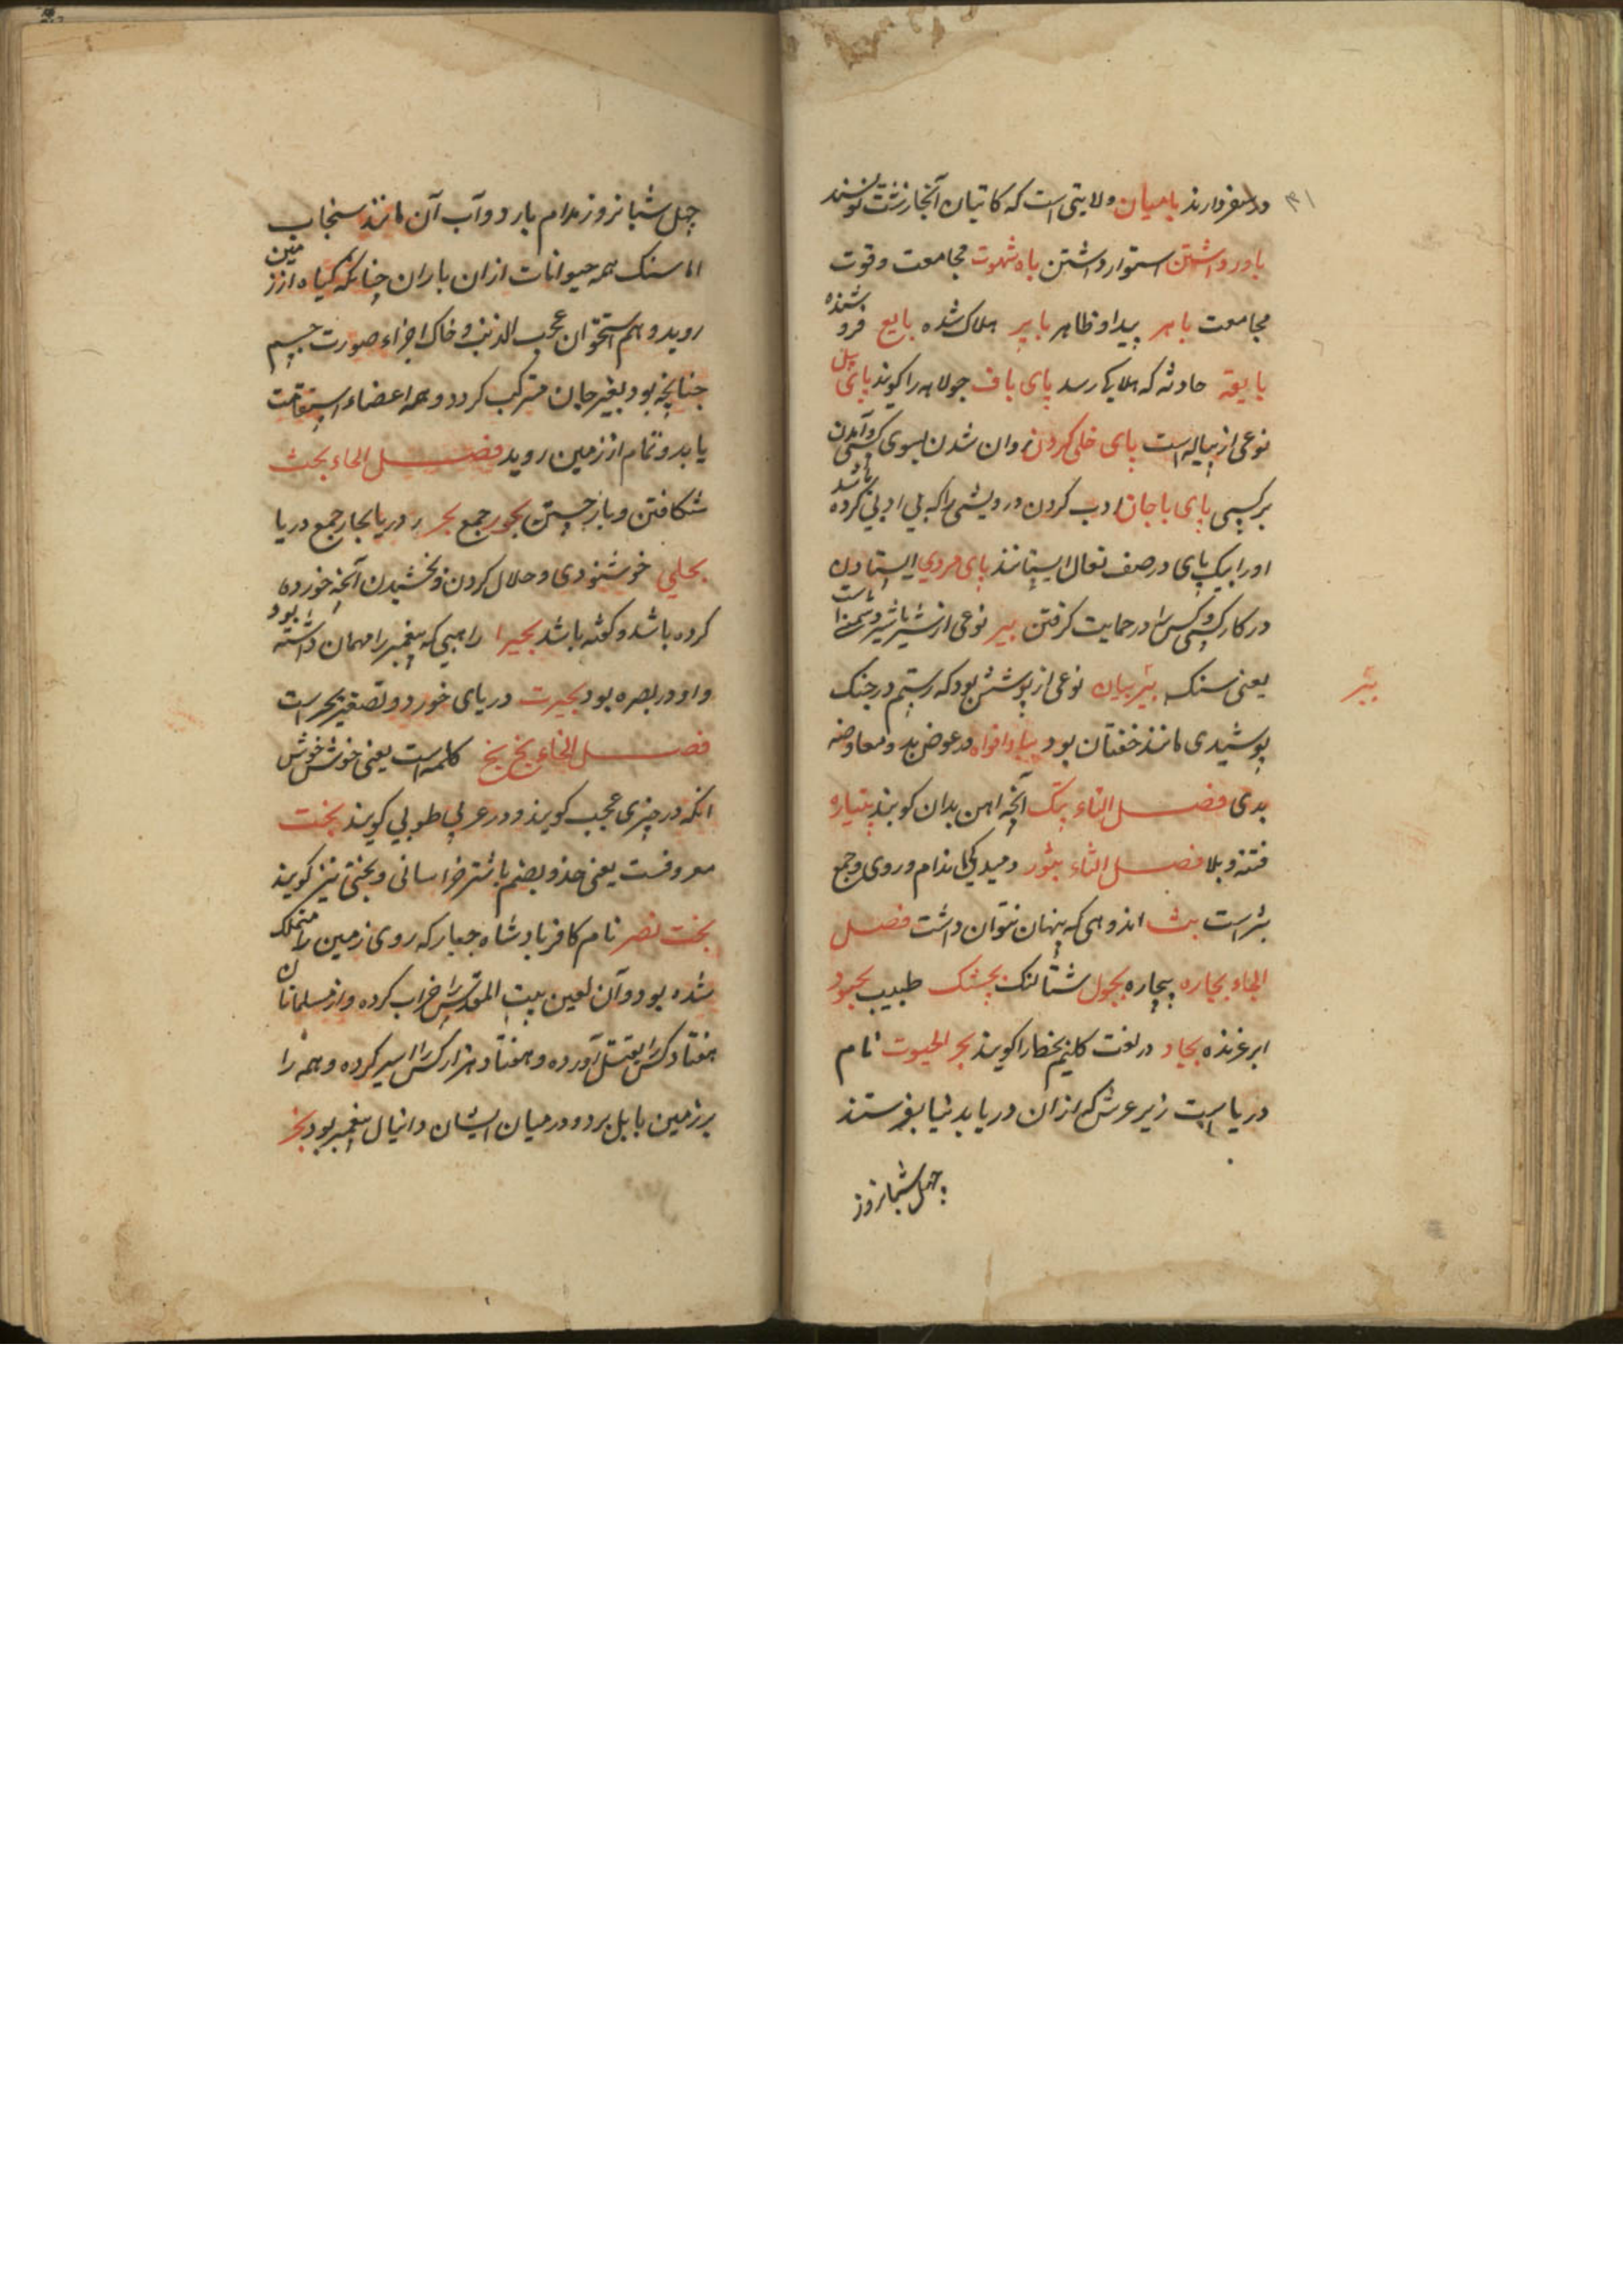 ۳۱
و در سفر دارند بامیان ولایتی است که کاتبان آنجا زشت نویسند
باور داشتن استوار داشتن باه شهوت مجامعت و قوت
مجامعت باهر پیدا و ظاهر بایر هلاک شده بایع فروشنده
بایقه حادثه که هلاکی رسد پای باف جولاهه را کویند پای پیل
نوعی از پیاله است پای خاکی کردن روان شدن بسوی کسی و آمدن
بر کسی پای باجان ادب کردن درویشی را که بی ادبی کرده باشد
او را بیک پای در صف نعال ایستانند پای مردی ایستادن
در کار کسی و کس را در حمایت کرفتن ببر نوعی از شیر است
یعنی سنک ببر بیان نوعی از پوشش بود که رستم در جنک
ببر
پوشیدی مانند خفتان بود پادافراه در عوض بد و معاوضه
بدی فصل التاء پتک آنچه اهن بدان کوبند پتیاره
فتنه و بلا فصل الثاء بثور دمیدکی اندام و روی و جمع
بثر است بث اندوهی که پنهان نتوان داشت فصل
الجاء بجاره بیچاره بجول شتالنک بجشک طبیب بجنود
ابر غرنده بجاد در لغت کلیم مخطط را کویند بحر الحیوت نام
دریا است زیر عرش که از ان دریا بدنیا بفرستند
چهل شبانروز
چهل شبانروز مدام بارد و آب آن مانند سنجاب
اما سنک همه حیوانات از ان باران چنانکه کیاه از زمین
روید و هم استخوان عجب الذنب و خاک اجزاء صورت جسم
چنانچه بود بغیر جان مترکب کردد و همه اعضاء استقامت
یابد و تمام از زمین روید فصل الحاء بحث
شکافتن و باز جستن بحور جمع بحر و دریا بحار جمع دریا
بحلی خوشنودی و حلال کردن و بخشیدن آنچه خورده
کرده باشد و کفته باشد بحیرا راهبی که پیغمبر را مهمان داشته بود
و او در بصره بود بحیرت دریای خورد و تصغیر بحر است
فصل الخاء بخ بخ کلمه است یعنی خوش خوش
انکه در چیزی عجب کویند و در عربی طوبی کویند بخت
معروفست یعنی حذ و بضم با شتر خراسانی و بختی نیز کویند
بخت نصر نام کافر بادشاه جبار که روی زمین را متملک
شده بود و آن لعین بیت المقدس را خراب کرده و از مسلمانان
هفتاد کس را بقتل آورده و هفتاد هزار کس را اسیر کرده و همه را
بر زمین بابل برد و در میان ایشان دانیال پیغمبر بود بخر